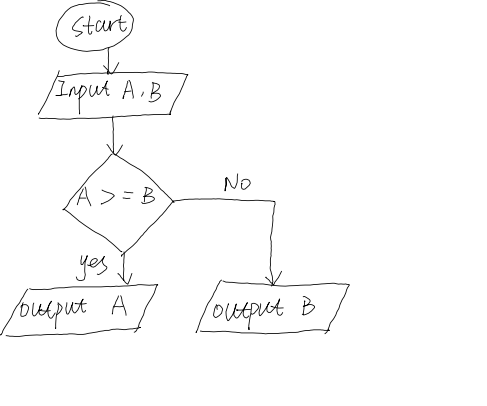 Start
Input A,B
A >= B
No
yes
output A
output B